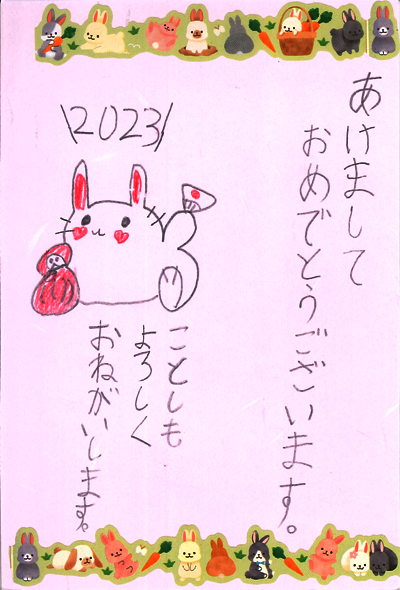 あけまして
おめでとうございます。
\2023/
ことしも
よろしく
おねがいします。